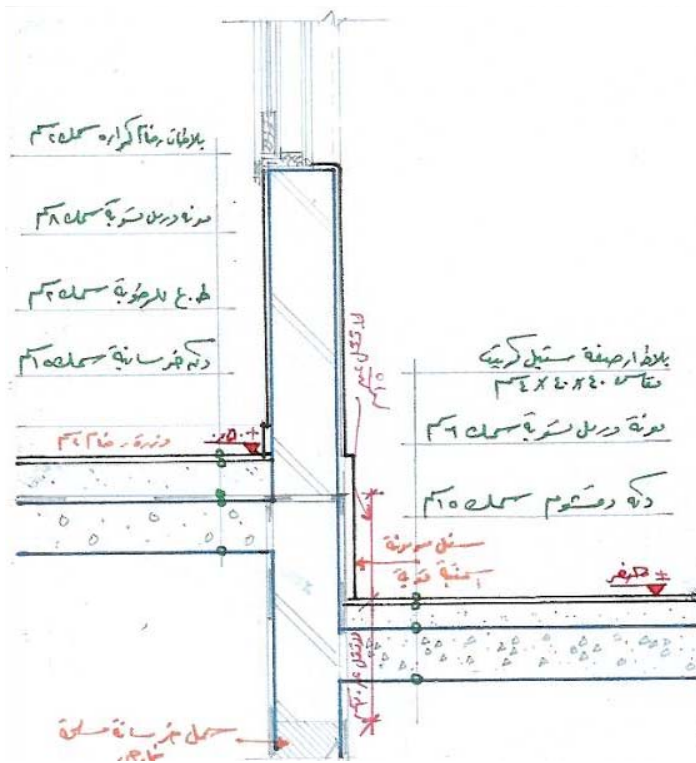 بلاطات رخام كراره سمك ٢سم
مونه ورمل تسوية سمك ٨سم
ط.ع للرطوبة سمك ٢سم
دكه خرسانية سمك ١٥سم
وزرة رخام ٢سم
± ٠.٥٠
لا تقل عن
١٥سم
بلاط ارصفة ستيل كريت
مقاس ٤٠ × ٤٠ × ٤سم
مونة ورمل تسوية سمك ٦سم
دكه دقشوم سمك ١٥سم
± صفر
سفل مونة
اسمنتية قوية
لا تقل عن
حمل خرسانة مسلحة
خارجي